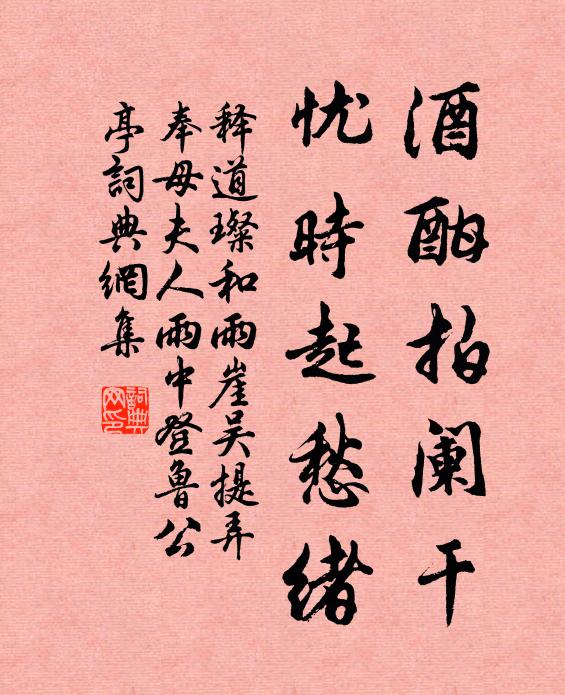 酒酣拍阑干
忧時起愁绪
释道璨和雨崖吴提弄
奉母夫人雨中登鲁公
亭詞典網集
詞典网印